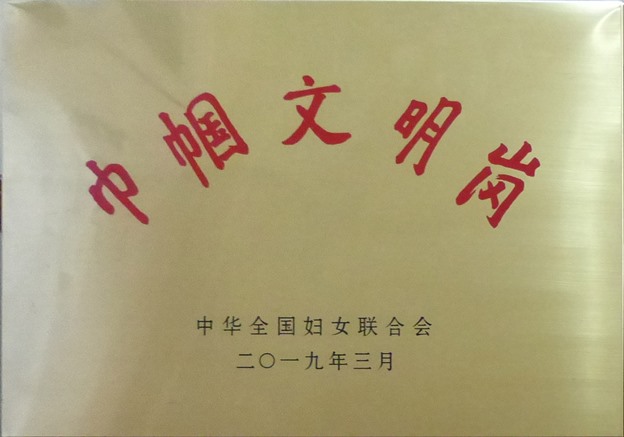 巾帼文明岗
中华全国妇女联合会
二〇一九年三月